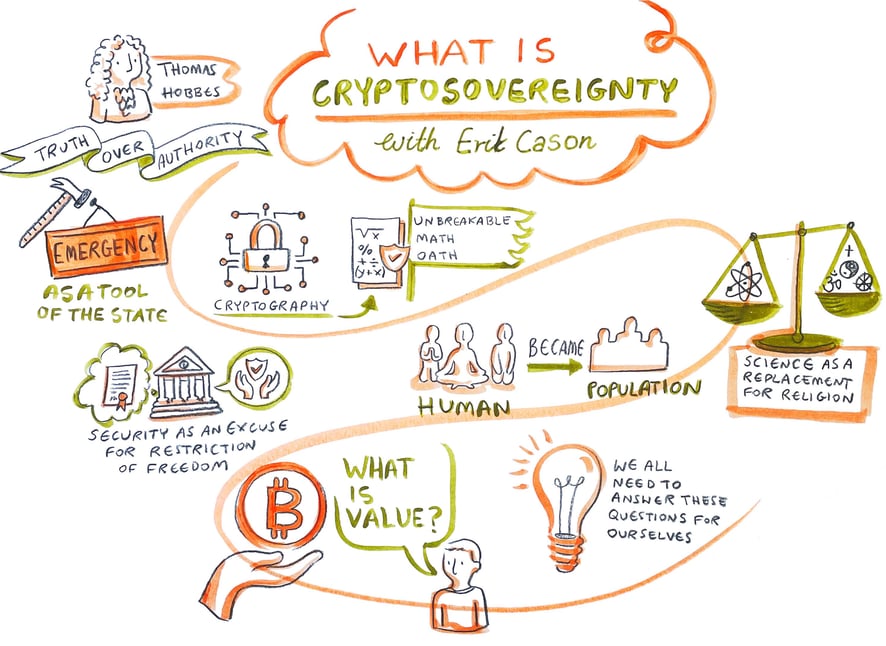 WHAT IS
CRYPTOSOVEREIGNTY
with Erik Cason
THOMAS
HOBBES
TRUTH OVER AUTHORITY
EMERGENCY
AS A TOOL
OF THE STATE
CRYPTOGRAPHY
√x
%
+ ÷
(y+x)
UNBREAKABLE
MATH
OATH
SCIENCE AS A
REPLACEMENT
FOR RELIGION
HUMAN
BECAME
POPULATION
SECURITY AS AN EXCUSE
FOR RESTRICTION
OF FREEDOM
₿
WHAT
IS
VALUE?
WE ALL
NEED TO
ANSWER THESE
QUESTIONS FOR
OURSELVES